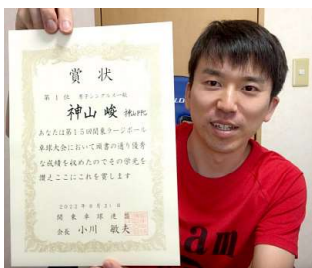 賞状
第1位 男子シングルス一般
神山 峻
あなたは第15回関東ラージボール
卓球大会において頭書の通り優秀
な成績を収めたのでその栄光を
讃えここにこれを賞します
関東卓球連盟
会長 小川 敏夫
am